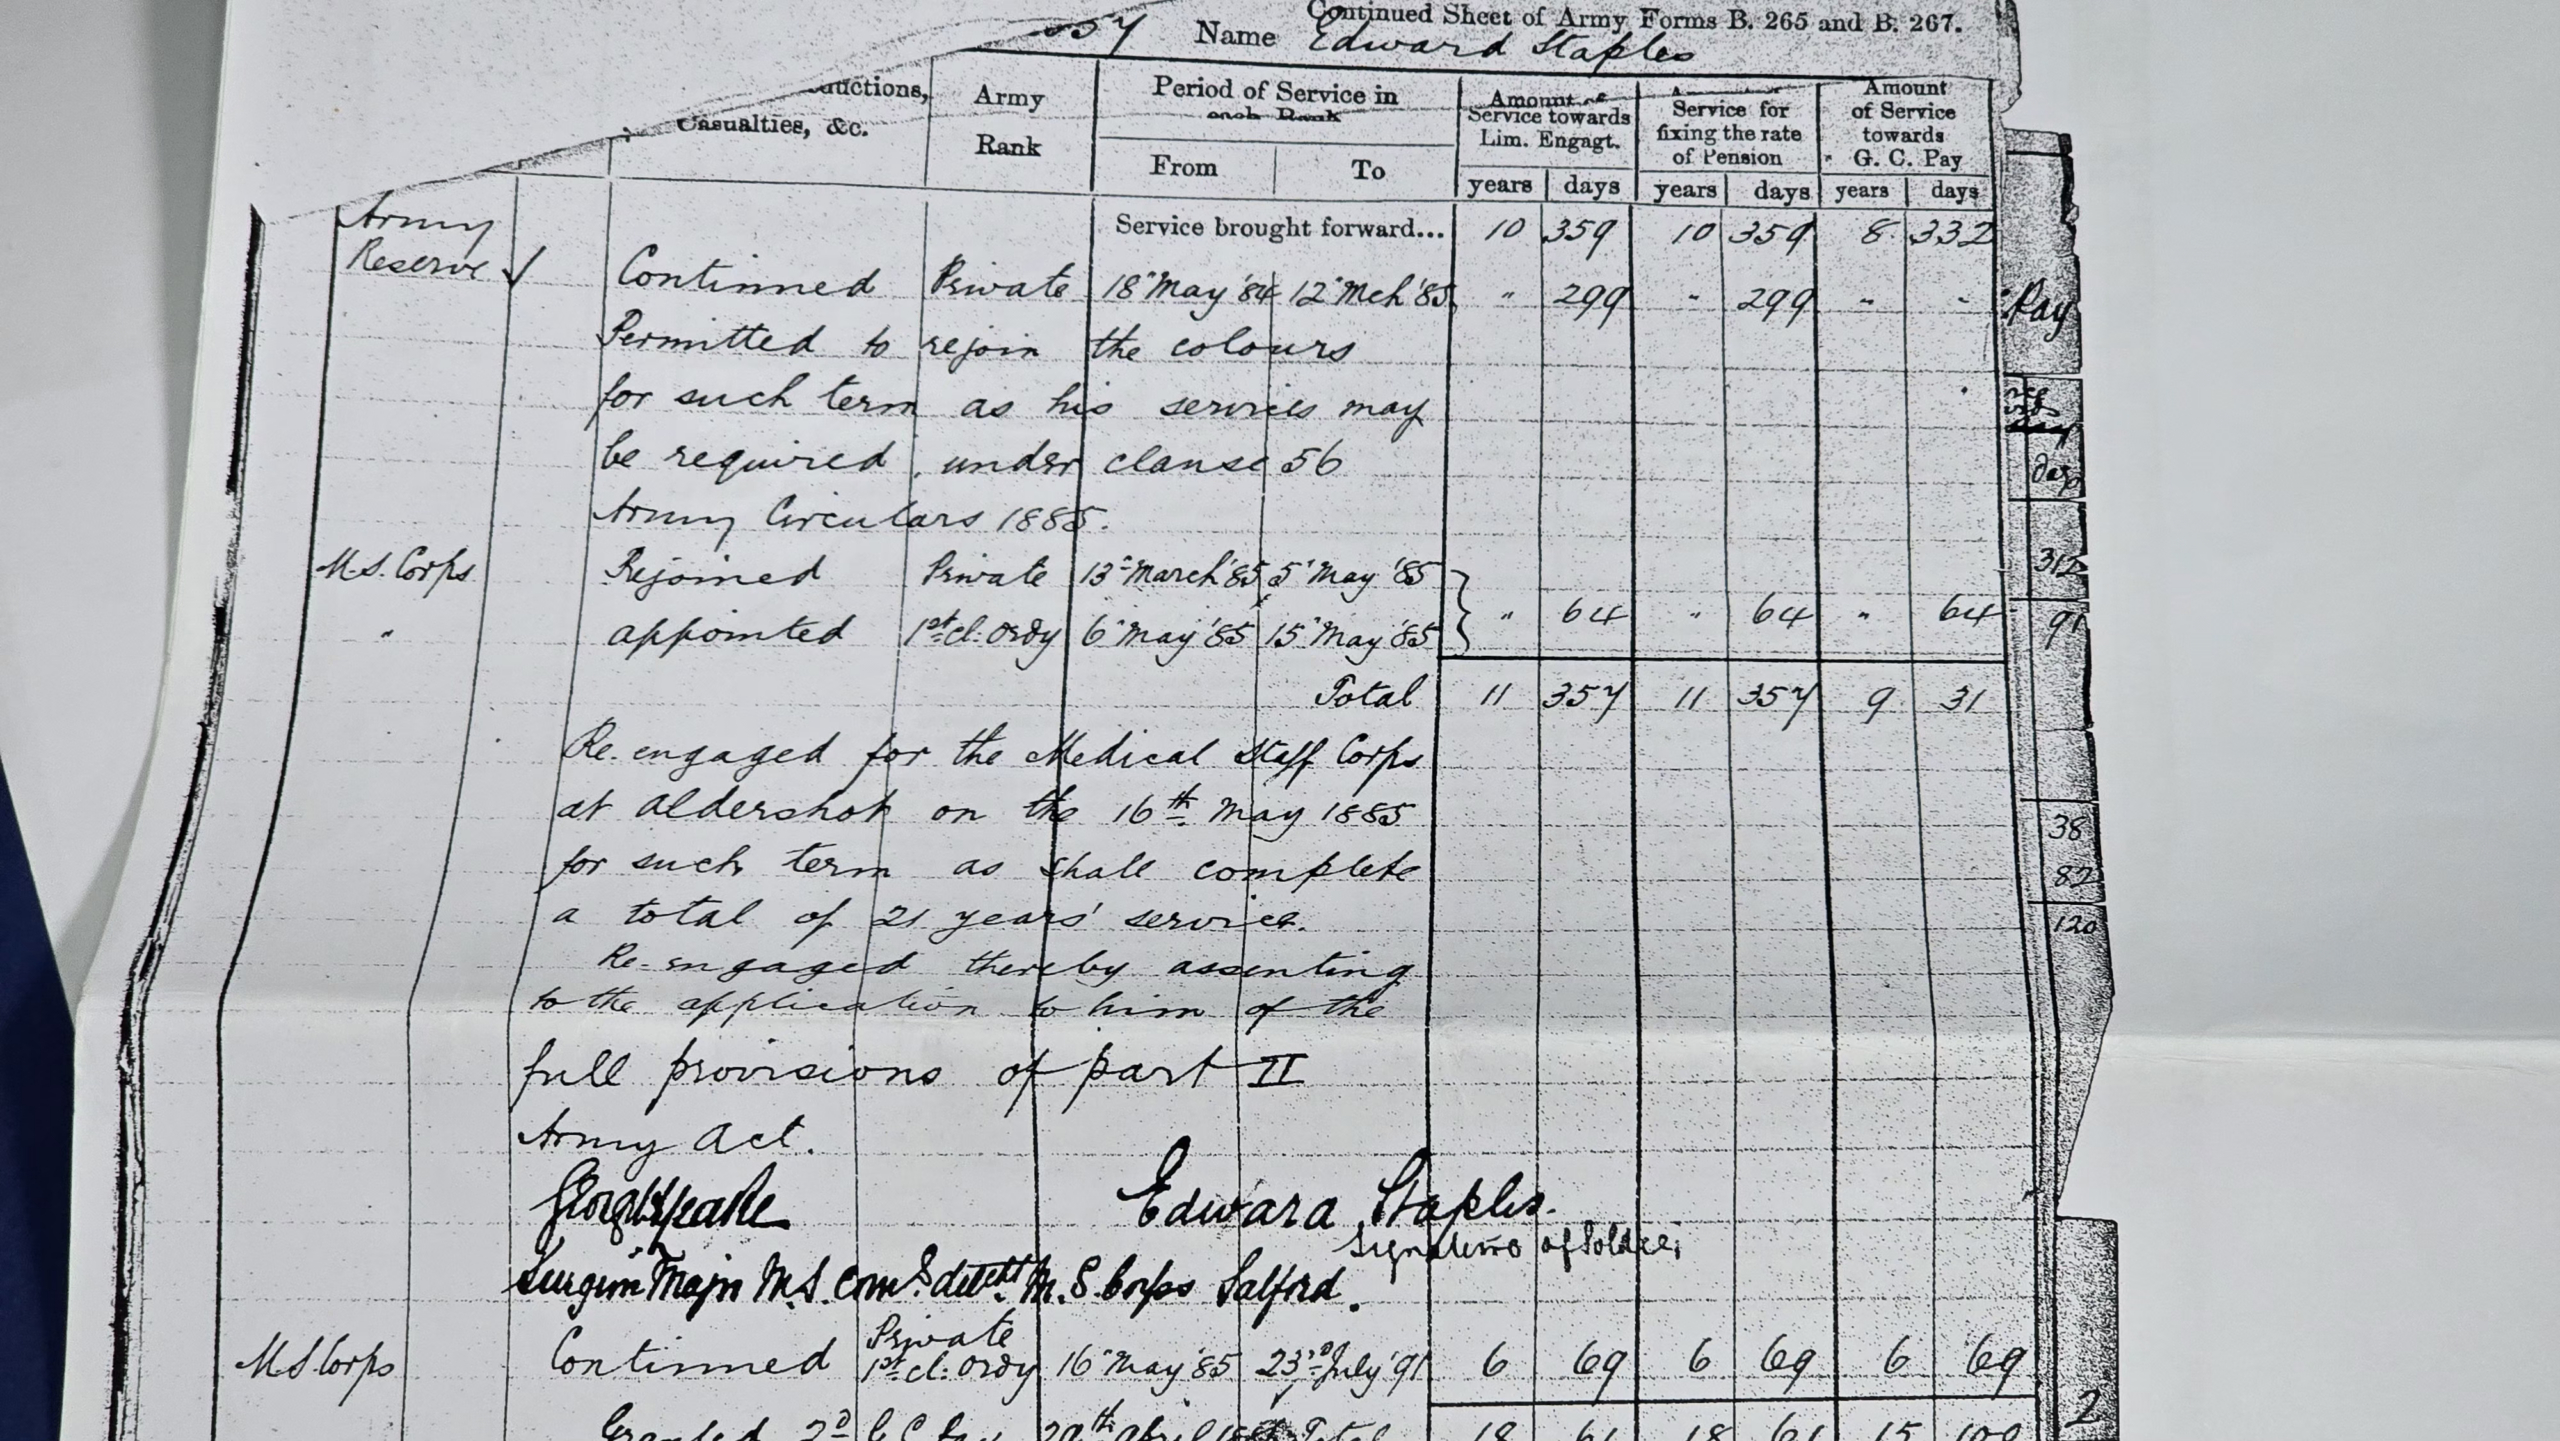 Continued Sheet of Army Forms B. 265 and B. 267.
Name Edward Staples
Casualties, &c.
Army Rank
Period of Service in each Rank
From To
Amount of Service towards Lim. Engagt.
Service for fixing the rate of Pension
Amount of Service towards G. C. Pay
years days years days years days
Army Service brought forward... 10 359 10 359 8 332
Reserve Continued Private 18 May '84 12 Mch '85 " 299 " 299 " "
Permitted to rejoin the colours
for such term as his services may
be required, under clause 56
Army Circulars 1885.
M.S. Corps Rejoined Private 13 March '85 5 May '85
" appointed 1st cl: Ordy 6 May '85 15 May '85 " 64 " 64 " 64
Total 11 357 11 357 9 31
Re-engaged for the Medical Staff Corps
at Aldershot on the 16th May 1885
for such term as shall complete
a total of 21 years' service.
Re-engaged thereby assenting
to the application to him of the
full provisions of part II
Army Act.
Edward Staples.
Signature of Soldier
Surgeon Major M.S. Comg. detcht. M.S. Corps Salford.
M.S. Corps Continued Private 1st cl: Ordy 16 May '85 23rd July '91 6 69 6 69 6 69
Granted 2d G C Pay 29th April Total 18 61 18 61 15 100
Pay
days
312
91
38
82
120
2